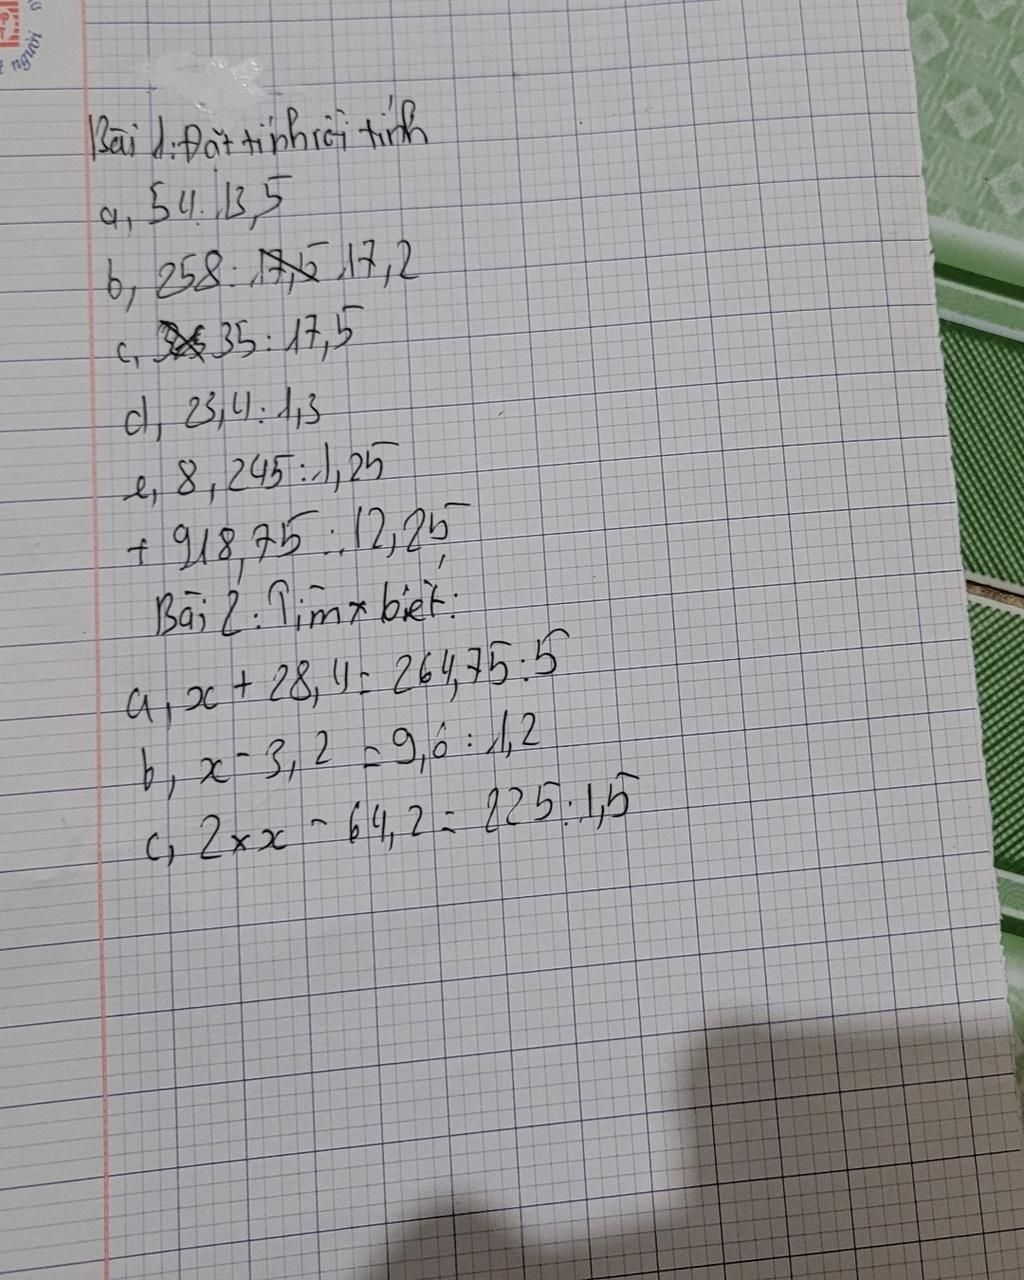 người
Bài 1: Đặt tính rồi tính
a, 54: 13,5
b, 258: 17,2
c, 35: 17,5
d, 23,4: 1,3
e, 8,245: 1,25
+ 918,75 : 12,25
Bài 2: Tìm x biết:
a, x + 28,4 = 264,75: 5
b, x - 3,2 = 9,6: 1,2
c, 2 × x - 64,2 = 225: 1,5